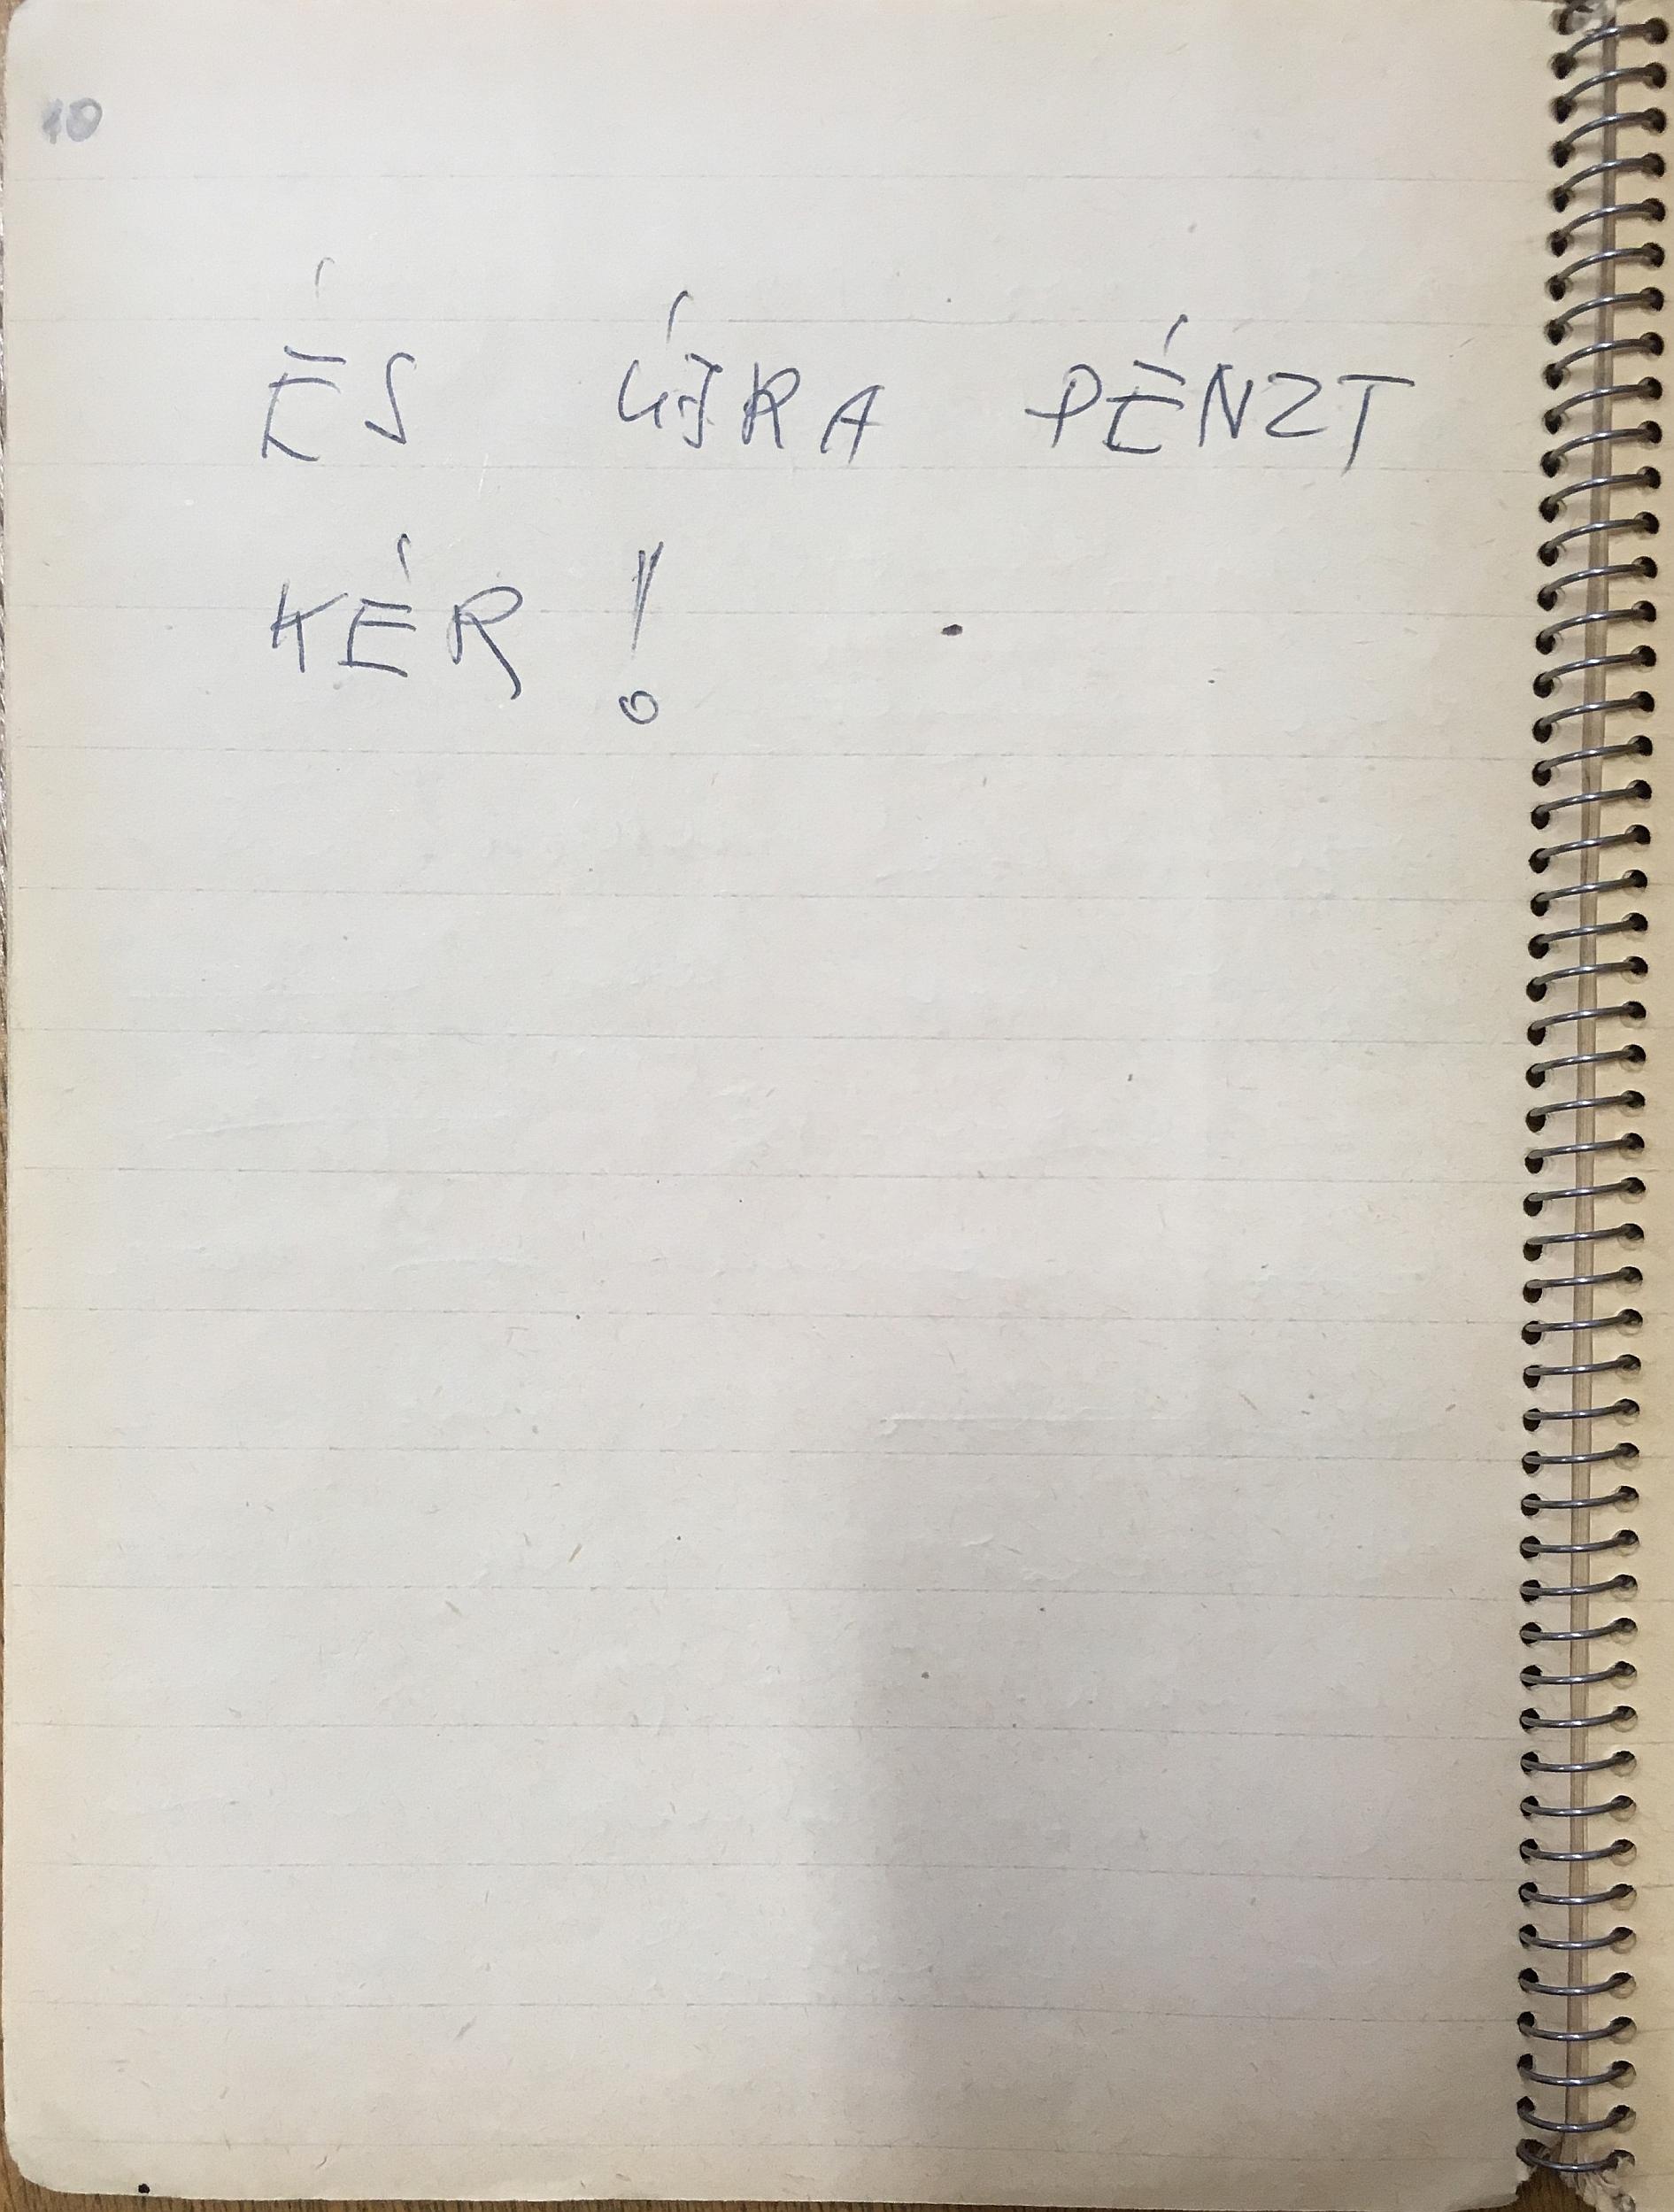 10
ÉS ÚJRA PÉNZT
KÉR!